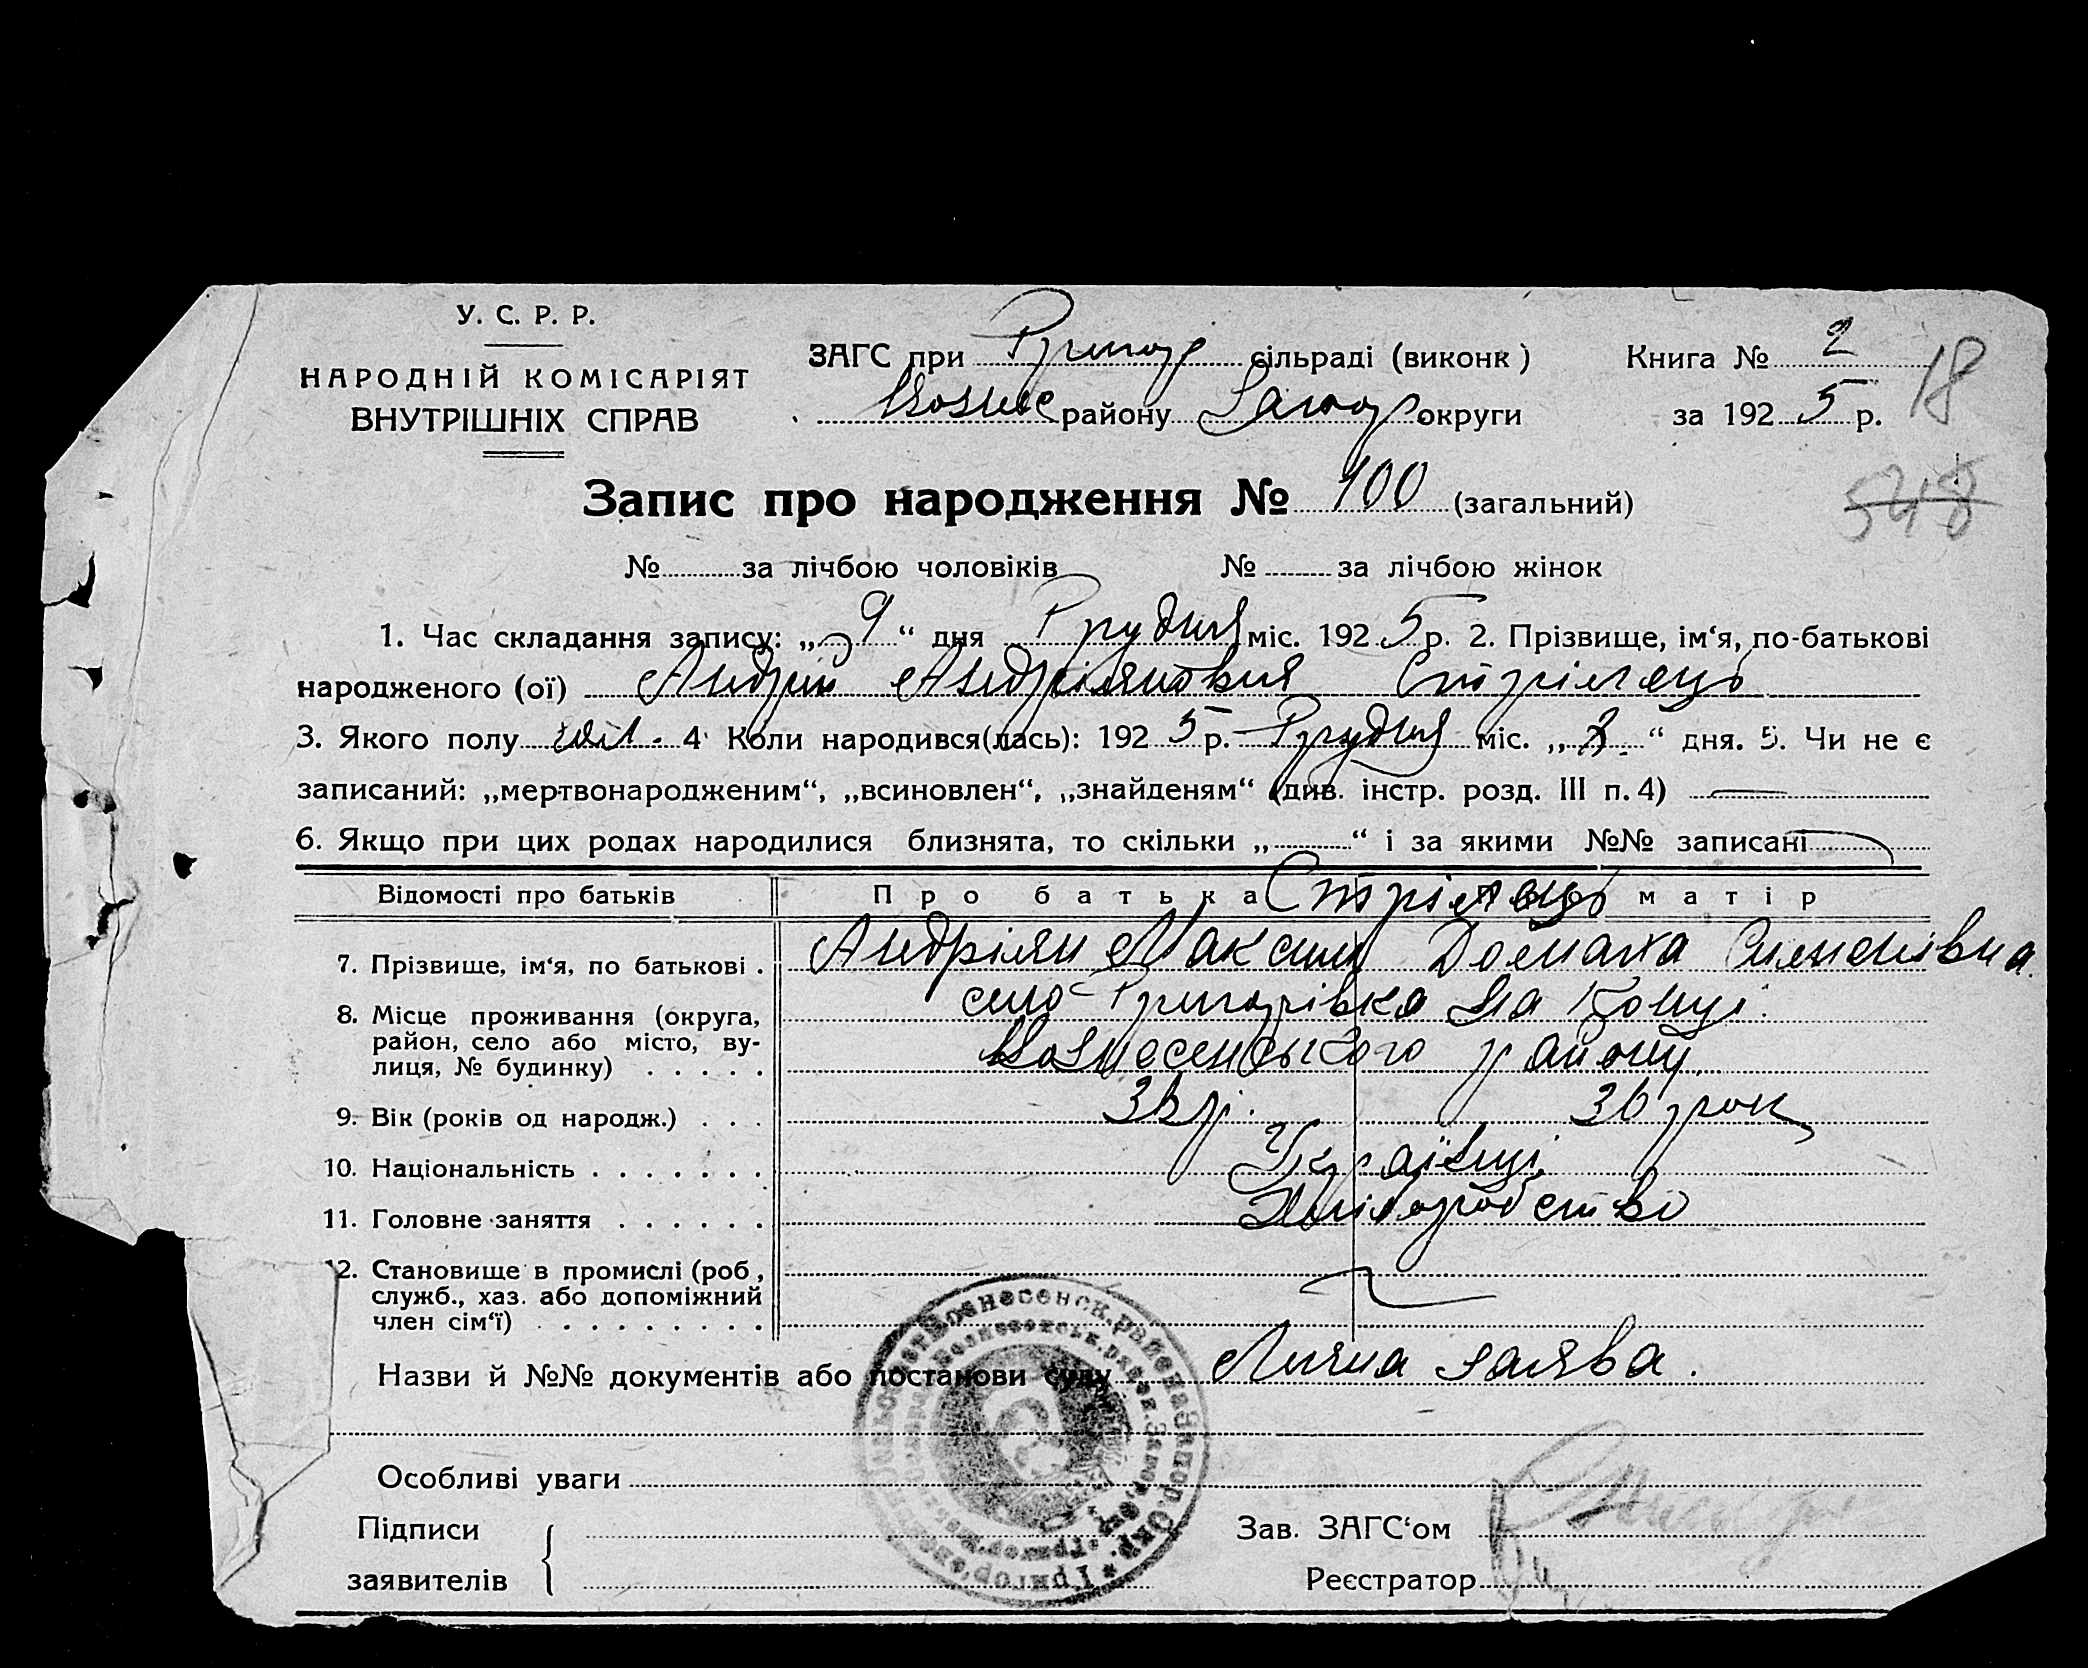 У. С. Р. Р.
НАРОДНІЙ КОМІСАРІЯТ
ВНУТРІШНІХ СПРАВ
ЗАГС при Григор сільраді (виконк)
Вознес району Запор округи
Книга № 2
за 1925 р.
18
548
Запис про народження № 100 (загальний)
№ за лічбою чоловіків № за лічбою жінок
1. Час складання запису: „9“ дня Грудня міс. 1925 р. 2. Прізвище, ім‘я, по-батькові
народженого (ої) Андрий Андріянович Стрілець
3. Якого полу чол. 4 Коли народився(лась): 1925 р. Грудня міс. „ “ дня. 5. Чи не є
записаний: „мертвонародженим“, „всиновлен“, „знайденям“ (див. інстр. розд. III п. 4)
6. Якщо при цих родах народилися близнята, то скільки „ “ і за якими №№ записані
Відомості про батьків Про батька Стрілець матір
7. Прізвище, ім‘я, по батькові . Андріян Максим Домаха Сименівна
8. Місце проживання (округа, село Григорівка на Конці
район, село або місто, ву- Вознесенського району
лиця, № будинку) . . . . .
9. Вік (років од народж.) . . . 36 р. 36 рок
10. Національність . . . . . . . Українці
11. Головне заняття . . . . . . Хліборобство
12. Становище в промислі (роб,
служб., хаз. або допоміжний
член сім‘ї) . . . . . . . . .
Назви й №№ документів або постанови суду Лична заява.
Особливі уваги
Підписи
заявителів
Зав. ЗАГС‘ом
Реєстратор